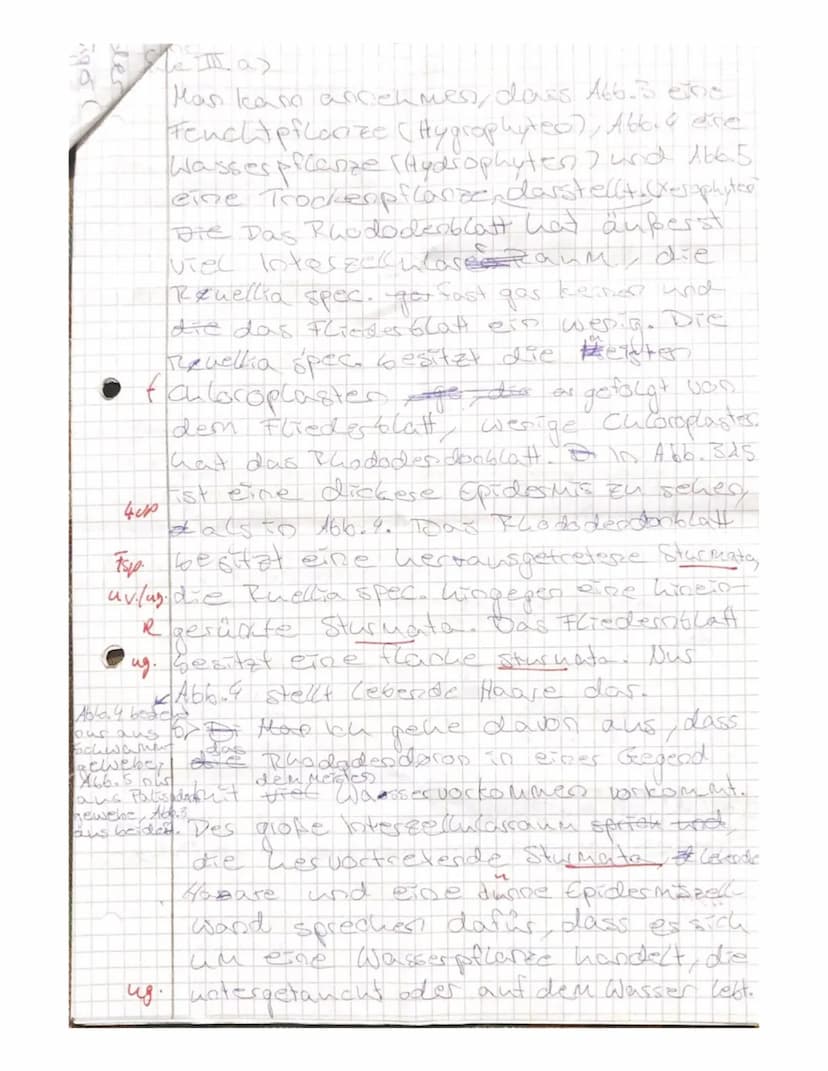 III. a)
Man kann annehmen, dass Abb. 3 eine
Feuchtpflanze (Hygrophyten), Abb. 4 eine
Wasserpflanze (Hydrophyten) und Abb. 5
eine Trockenpflanze darstellt. (Xerophyten)
Die Das Rhododenblatt hat äußerst
viel Interzellularraum, die
Ruellia spec. gar fast gar keinen und
die das Fliederblatt ein wenig. Die
Ruellia spec. besitzt die meisten
f Chloroplasten gefolgt von
dem Fliederblatt, wenige Chloroplasten
hat das Rhododendronblatt. In Abb. 3&5
ist eine dickere Epidermis zu sehen,
als in Abb. 4. Das Rhododendonblatt
Fsp. besitzt eine herrausgetretene Sturmata,
uv./ug. die Ruellia spec. hingegen eine hinein-
R gerückte Sturmata. Das Fliedernblatt
ug. besitzt eine flache Sturmata. Nur
Abb. 4 stellt lebende Haare dar.
Abb. 4 besteht
nur aus
Schwamm-
gewebe,
Abb. 5 nur
aus Palisaden-
gewebe, Abb. 3
aus beiden.
b) Man Ich gehe davon aus, dass
die das Rhododendoron in einer Gegend
mit viel dem meisten Wasservorkommen vorkommt.
Der große Interzellularraum und
die hervortretende Sturmata, lebende
Haare und eine dünne Epidermiszell-
wand sprechen dafür, dass es sich
um eine Wasserpflanze handelt, die
ug. untergetaucht oder auf dem Wasser lebt.